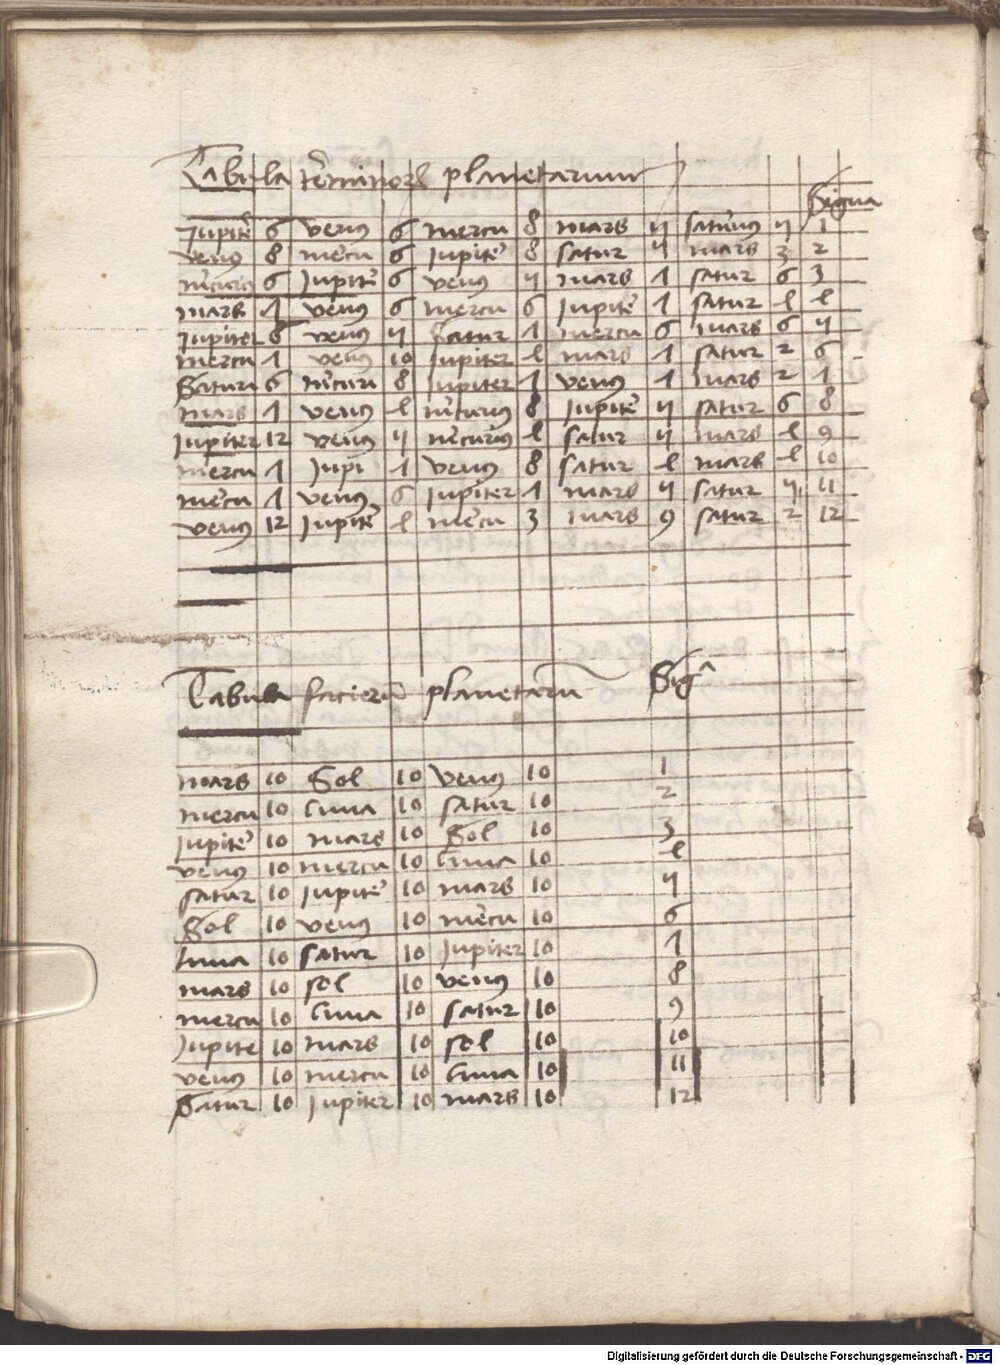 Tabula t̄minorꝝ planetarum
Signa
Jupit̄ 6 venꝰ 6 mercu 8 mars 5 saturnꝰ 5 1
venꝰ 8 m̄cu 6 Jupit̄ 8 satur 5 mars 3 2
m̄curiꝰ 6 Jupit̄ 6 venꝰ 5 mars 7 satur 6 3
mars 7 venꝰ 6 mercu 6 Jupit̄ 7 satur 4 4
Jupiter 6 venꝰ 5 Satur 7 mercu 6 mars 6 5
mercu 7 venꝰ 10 Jupiter 4 mars 7 satur 2 6
Saturn 6 m̄curi 8 Jupiter 7 venꝰ 7 mars 2 7
mars 7 venꝰ 4 m̄curiꝰ 8 Jupit̄ 5 satur 6 8
Jupiter 12 venꝰ 5 m̄curiꝰ 4 satur 5 mars 4 9
mercu 7 Jupi 7 venꝰ 8 satur 4 mars 4 10
m̄cu 7 venꝰ 6 Jupiter 7 mars 5 satur 5 11
venꝰ 12 Jupit̄ 4 m̄cu 3 mars 9 satur 2 12
Tabula facierū planetarū Sigᵃ
mars 10 Sol 10 venꝰ 10 1
mercu 10 luna 10 satur 10 2
Jupit̄ 10 mars 10 Sol 10 3
venꝰ 10 mercu 10 luna 10 4
satur 10 Jupit̄ 10 mars 10 5
Sol 10 venꝰ 10 m̄cu 10 6
luna 10 satur 10 Jupiter 10 7
mars 10 sol 10 venꝰ 10 8
mercu 10 luna 10 satur 10 9
Jupite 10 mars 10 sol 10 10
venꝰ 10 mercu 10 luna 10 11
Satur 10 Jupiter 10 mars 10 12
Digitalisierung gefördert durch die Deutsche Forschungsgemeinschaft - DFG